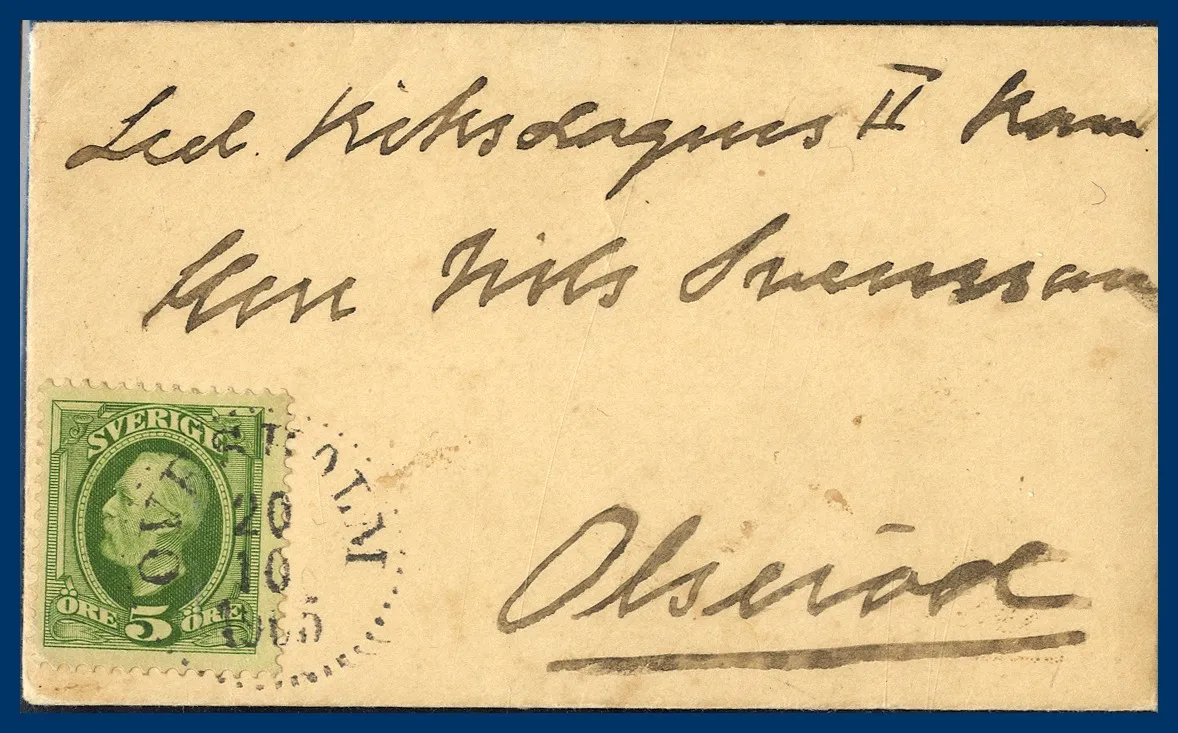 Led. Riksdagens II Kam
Herr Nils Svensson
Olseröd
SVERIGE
ÖRE 5 ÖRE
OVESHOLM
20
10